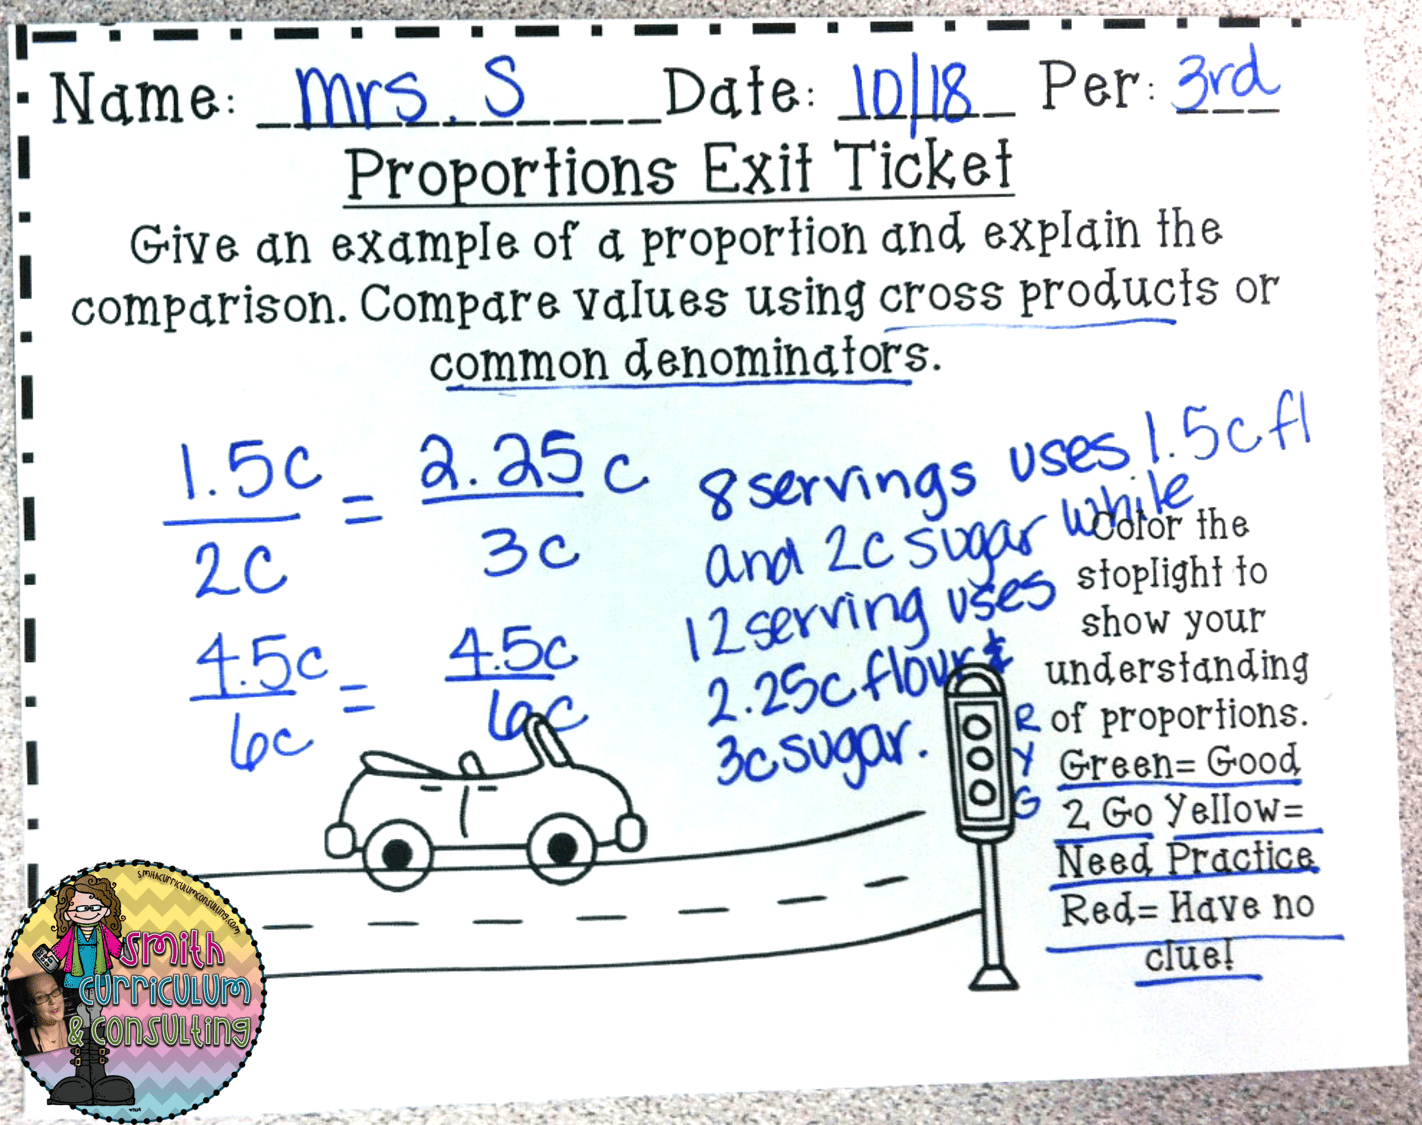 Name: Mrs. S Date: 10/18 Per: 3rd
Proportions Exit Ticket
Give an example of a proportion and explain the
comparison. Compare values using cross products or
common denominators.
1.5c = 2.25c
2c 3c
4.5c = 4.5c
6c 6c
8 servings uses 1.5c fl
and 2c sugar while
12 serving uses
2.25c flour &
3c sugar.
Color the
stoplight to
show your
understanding
of proportions.
Green= Good
2 Go Yellow=
Need Practice
Red= Have no
clue!
R
Y
G
smithcurriculumconsulting.com
Smith
Curriculum
& Consulting